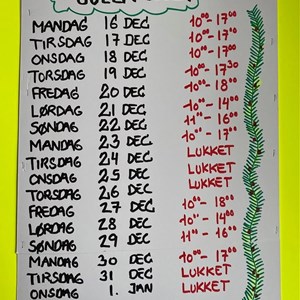 MANDAG 16 DEC 10⁰⁰ - 17⁰⁰
TIRSDAG 17 DEC 10⁰⁰ - 17⁰⁰
ONSDAG 18 DEC 10⁰⁰ - 17⁰⁰
TORSDAG 19 DEC 10⁰⁰ - 17³⁰
FREDAG 20 DEC 10⁰⁰ - 18⁰⁰
LØRDAG 21 DEC 10⁰⁰ - 14⁰⁰
SØNDAG 22 DEC 11⁰⁰ - 16⁰⁰
MANDAG 23 DEC 10⁰⁰ - 17⁰⁰
TIRSDAG 24 DEC LUKKET
ONSDAG 25 DEC LUKKET
TORSDAG 26 DEC LUKKET
FREDAG 27 DEC 10⁰⁰ - 18⁰⁰
LØRDAG 28 DEC 10⁰⁰ - 14⁰⁰
SØNDAG 29 DEC 11⁰⁰ - 16⁰⁰
MANDAG 30 DEC 10⁰⁰ - 17⁰⁰
TIRSDAG 31 DEC LUKKET
ONSDAG 1. JAN LUKKET